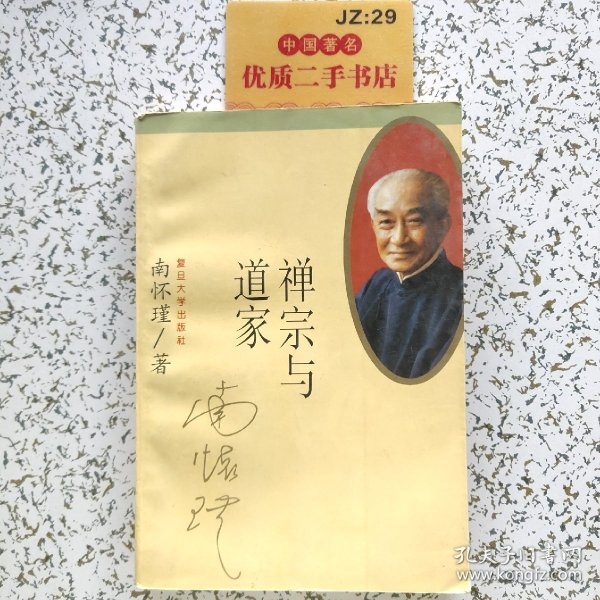 JZ:29
中国著名
优质二手书店
禅宗与
道家
复旦大学出版社
南怀瑾/著
南怀瑾
孔夫子旧书网
www.kongfz.com